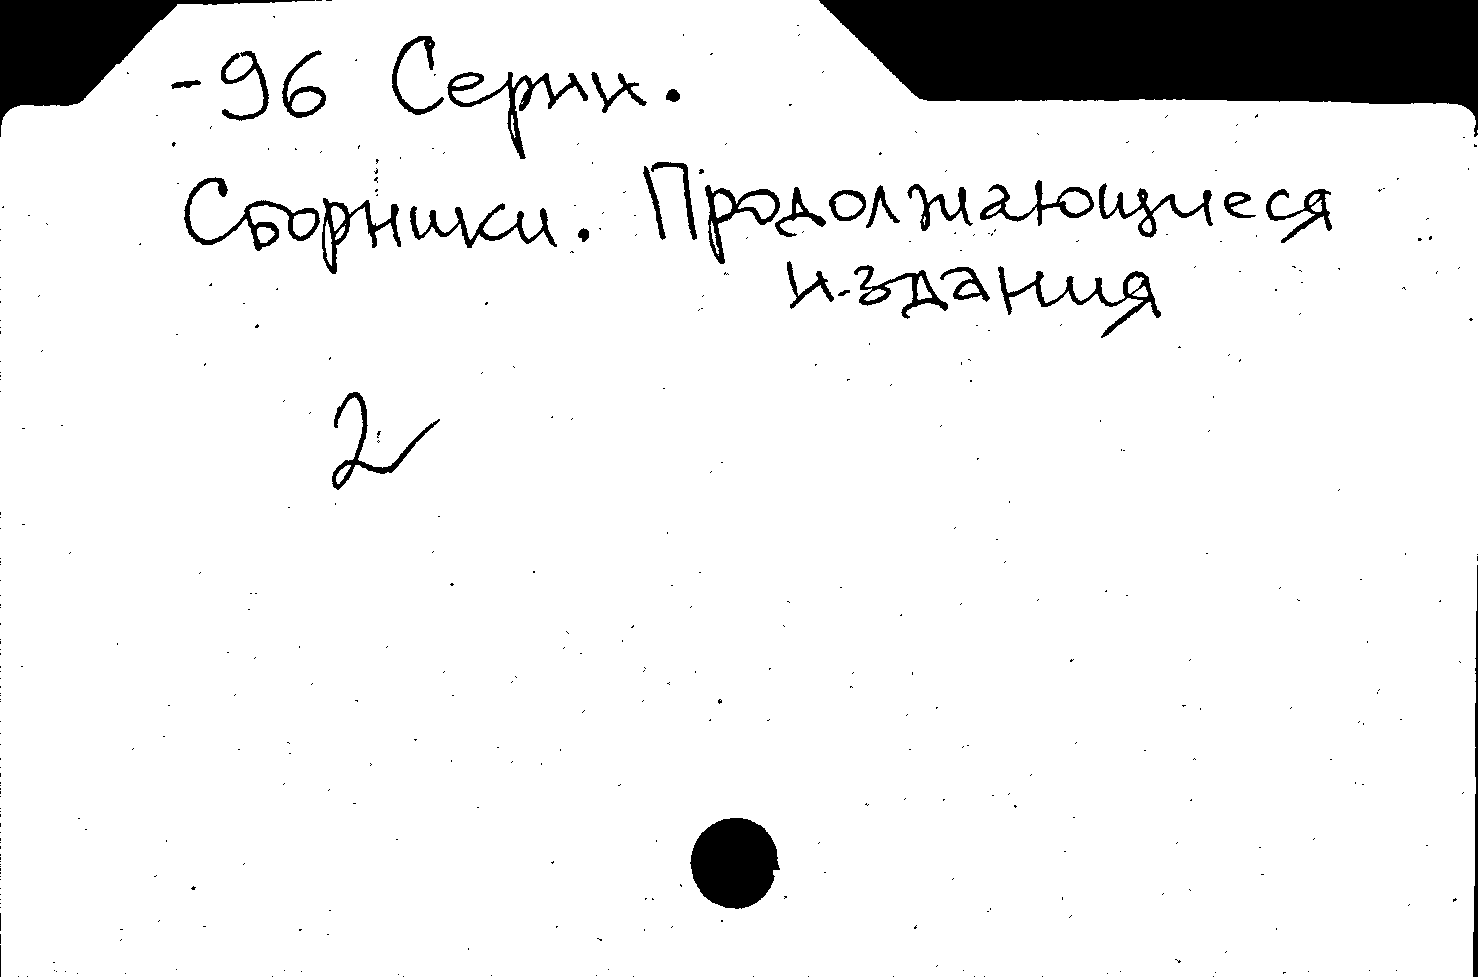 -96 Серии.
Сборники. Продолжающиеся
издания
2